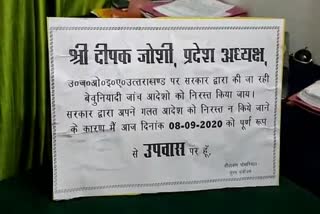 श्री दीपक जोशी, प्रदेश अध्यक्ष,
उ०ज०ओ०इ०ए०उत्तराखण्ड पर सरकार द्वारा की जा रही
बेबुनियादी जांच आदेशो को निरस्त किया जाय।
सरकार द्वारा अपने गलत आदेश को निरस्त न किये जाने
के कारण मैं आज दिनांक 08-09-2020 को पूर्ण रूप
से उपवास पर हूं,